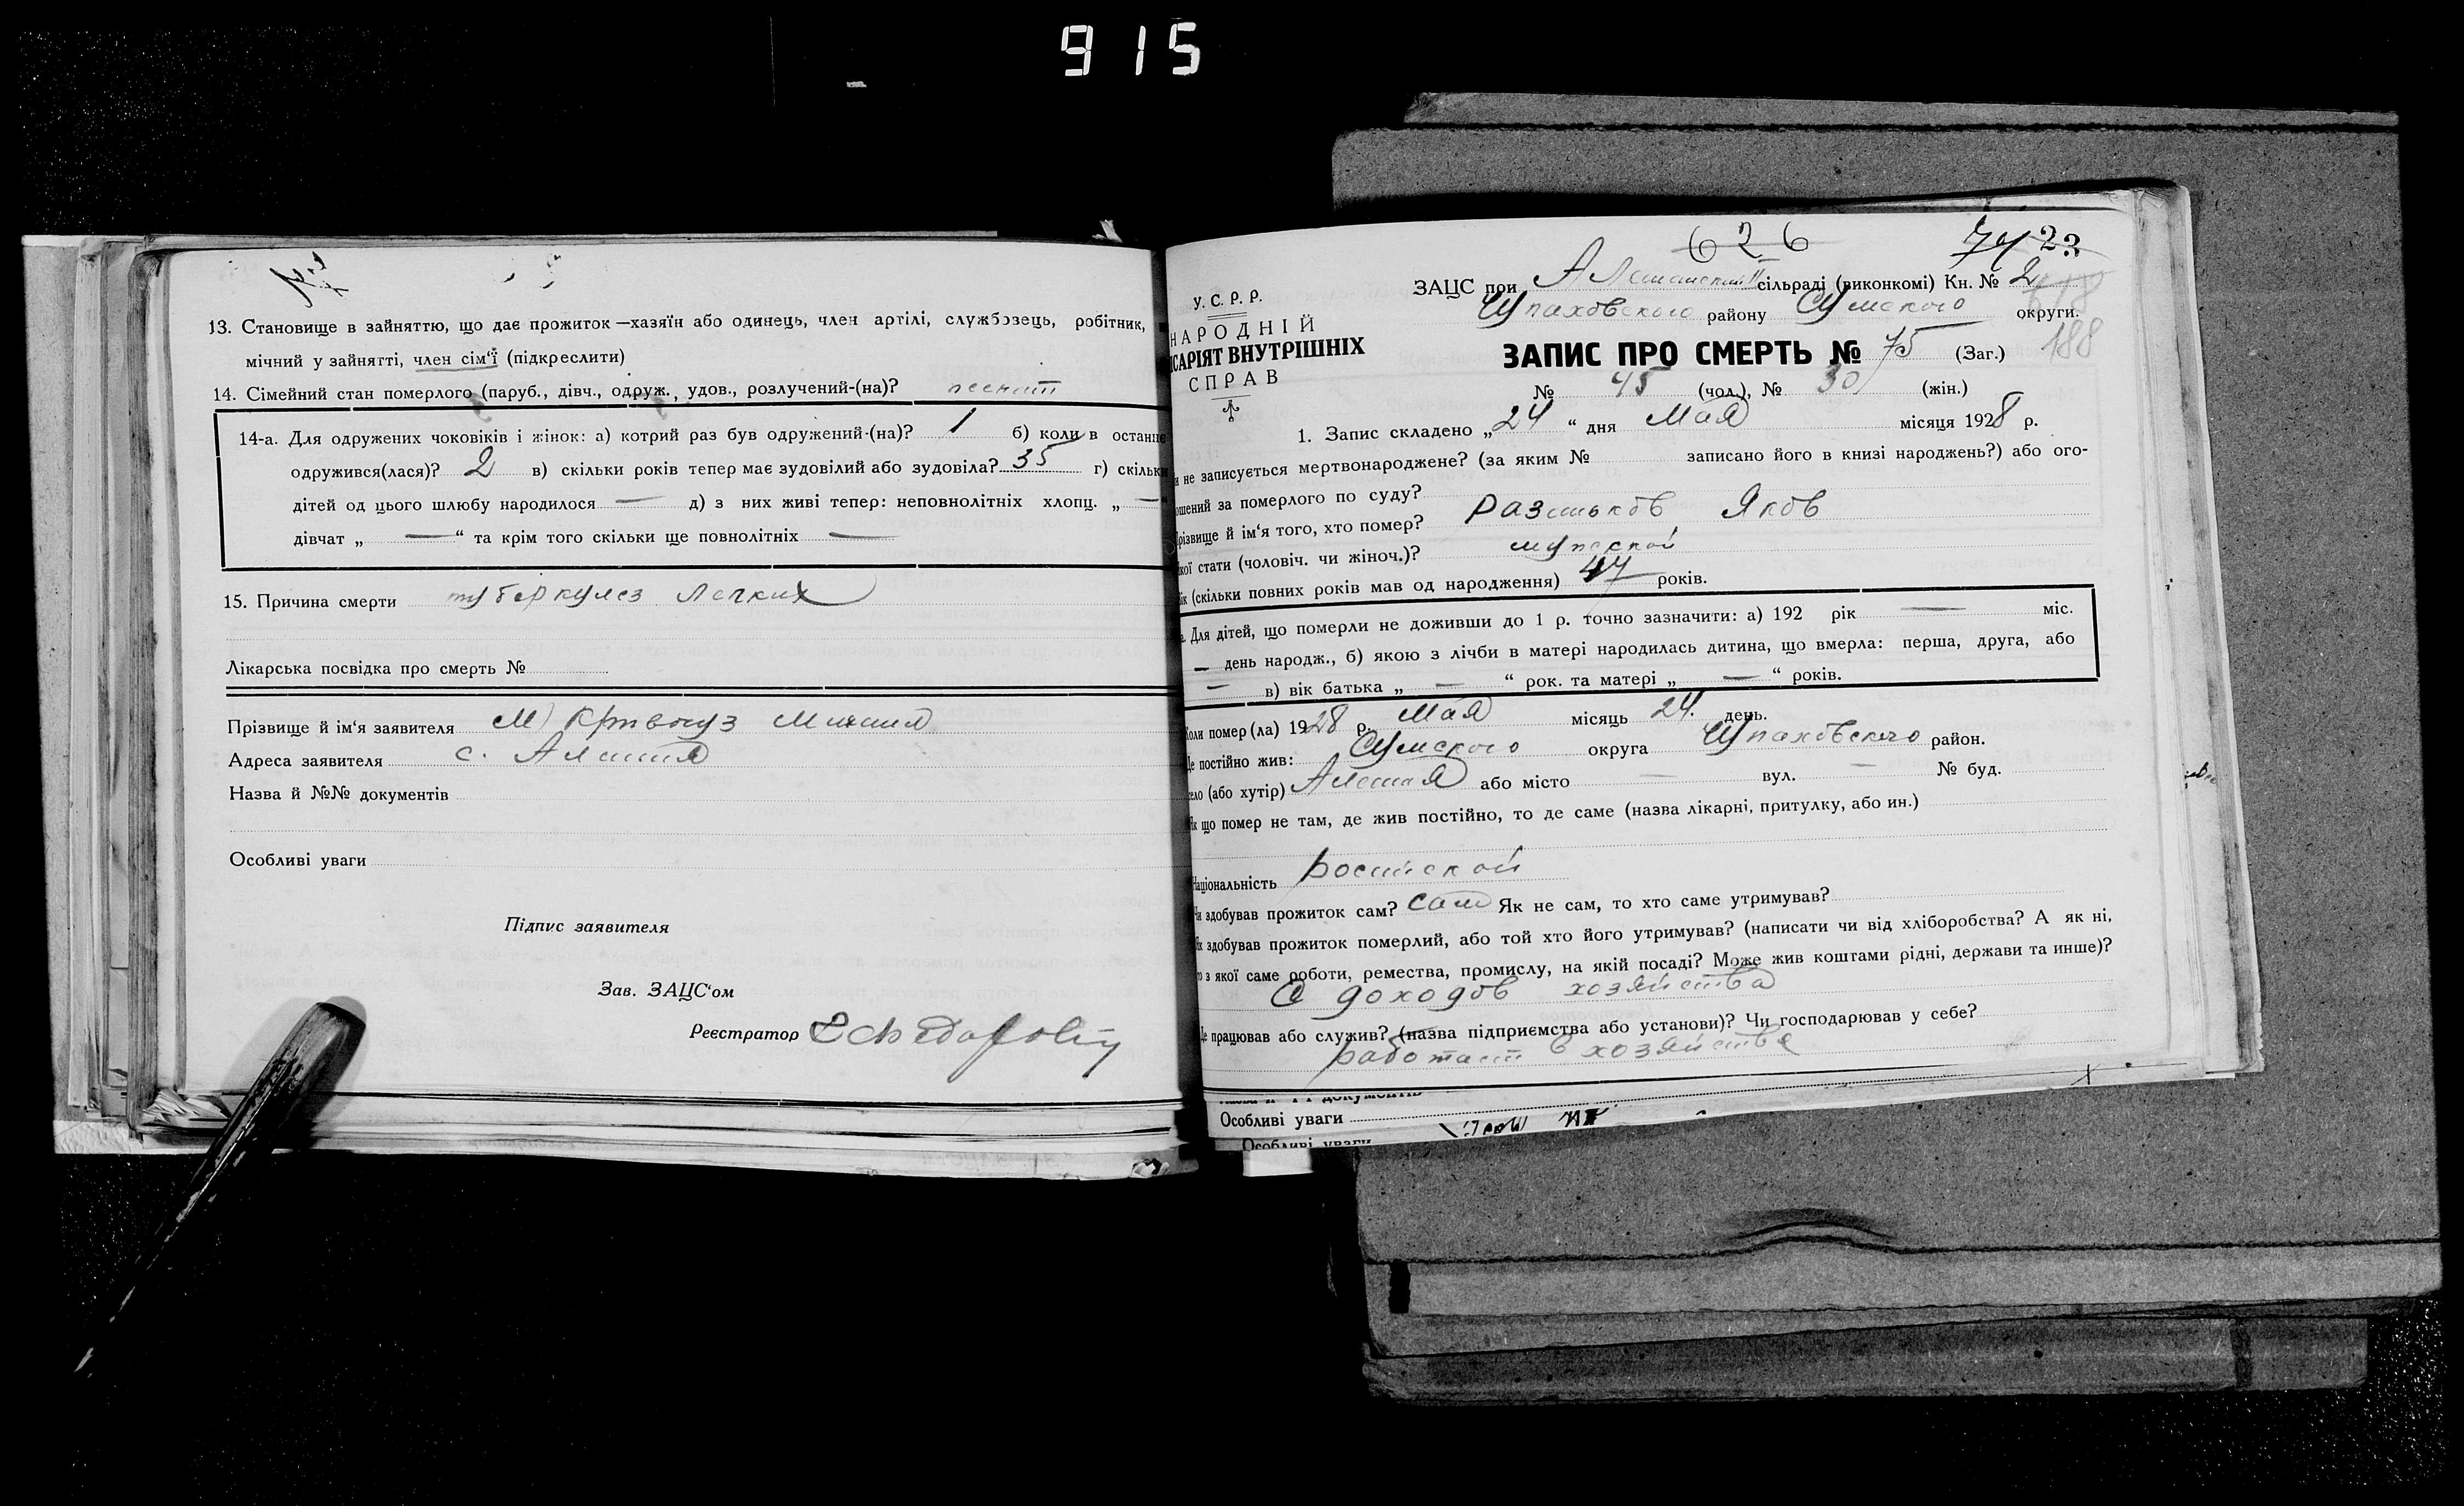 915
13. Становище в зайняттю, що дає прожиток—хазяїн або одинець, член артілі, службовець, робітник,
мічний у зайнятті, член сім'ї (підкреслити)
14. Сімейний стан померлого (паруб., дівч., одруж., удов., розлучений-(на)?
14-а. Для одружених чоковіків і жінок: а) котрий раз був одружений-(на)? 1 б) коли в останнє
одружився(лася)? 2 в) скільки років тепер має зудовілий або зудовіла? 35 г) скільки
дітей од цього шлюбу народилося — д) з них живі тепер: неповнолітніх хлопц. „ —
дівчат „ — “ та крім того скільки ще повнолітніх —
15. Причина смерти туберкулез легких
Лікарська посвідка про смерть №
Прізвище й ім'я заявителя Михаил
Адреса заявителя с. Алешня
Назва й №№ документів
Особливі уваги
Підпис заявителя
Зав. ЗАЦС'ом
Реєстратор
626 74 23
У. С. Р. Р.
НАРОДНІЙ
ІСАРІЯТ ВНУТРІШНІХ
СПРАВ
ЗАЦС при сільраді (виконкомі) Кн. № 2
района Сумского округи.
ЗАПИС ПРО СМЕРТЬ № 75 (Заг.) 188
№ 45 (чол.), № 30 (жін.)
1. Запис складено „24“ дня Мая місяця 1928 р.
и не записується мертвонароджене? (за яким № записано його в книзі народжень?) або ого-
ошений за померлого по суду?
різвище й ім'я того, хто помер? Разиньков Яков
кої стати (чоловіч. чи жіноч.)? мужской
ік (скільки повних років мав од народження) 47 років.
а. Для дітей, що померли не доживши до 1 р. точно зазначити: а) 192 рік — міс.
— день народж., б) якою з лічби в матері народилась дитина, що вмерла: перша, друга, або
— в) вік батька „ — “ рок. та матері „ — “ років.
Коли помер(ла) 1928 р. Мая місяць 24. день.
Де постійно жив: Сумского округа район.
ело (або хутір) Алешня або місто — вул. — № буд.
Як що помер не там, де жив постійно, то де саме (назва лікарні, притулку, або ин.)
Національність
Чи здобував прожиток сам? Сам Як не сам, то хто саме утримував?
Як здобував прожиток померлий, або той хто його утримував? (написати чи від хліборобства? А як ні,
то з якої саме роботи, ремества, промислу, на якій посаді? Може жив коштами рідні, держави та инше)?
С доходов хозяйства
Де працював або служив? (назва підприємства або установи)? Чи господарював у себе?
работает в хозяйстве
Особливі уваги
Особливі уваги